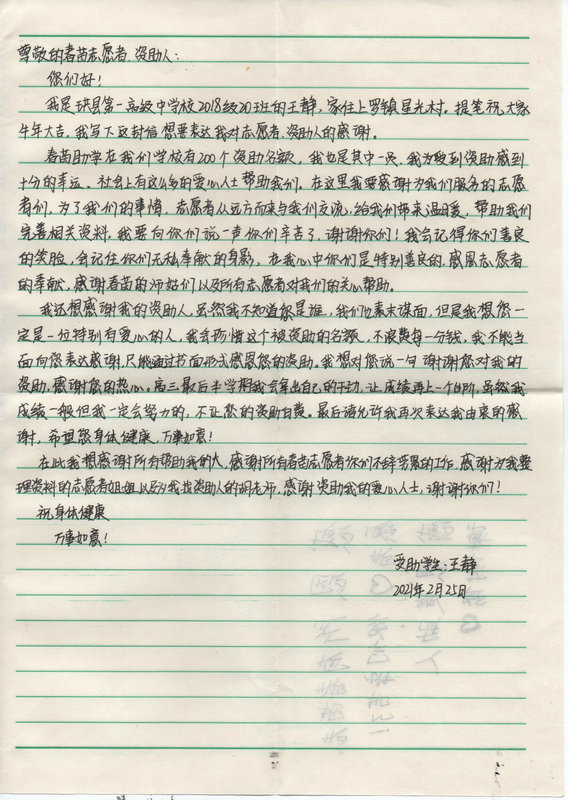 尊敬的春苗志愿者、资助人：
您们好！
我是珙县第一高级中学校2018级20班的王静，家住上罗镇星光村。提笔祝大家
牛年大吉，我写下这封信想要表达我对志愿者、资助人的感谢。
春苗助学在我们学校有200个资助名额，我也是其中一员，我为受到资助感到
十分的幸运。社会上有这么多的爱心人士帮助我们。在这里我要感谢为我们服务的志愿
者们，为了我们的事情，志愿者从远方而来与我们交流，给我们带来温暖，帮助我们
完善相关资料，我要向你们说一声你们辛苦了，谢谢你们！我会记得你们善良
的笑脸，会记住你们无私奉献的身影，在我心中你们是特别善良的，感恩志愿者
的奉献，感谢春苗的师好们以及所有志愿者对我们的关心帮助。
我还想感谢我的资助人，虽然我不知道您是谁，我们也素未谋面，但是我想您一
定是一位特别有爱心的人，我会珍惜这个被资助的名额，不浪费每一分钱，我不能当
面向您表达感谢，只能通过书面形式感恩您的资助。我想对您说一句 谢谢您对我的
资助，感谢您的热心。高三最后半学期我会拿出自己的干劲，让成绩再上一个台阶，虽然我
成绩一般但我一定会努力的，不让您的资助白费。最后请允许我再次表达我由衷的感
谢，希望您身体健康，万事如意！
在此我想感谢所有帮助我的人，感谢所有春苗志愿者你们不辞劳累的工作，感谢为我整
理资料的志愿者姐姐以及为我找资助人的胡老师，感谢资助我的爱心人士，谢谢你们！
祝身体健康
万事如意！
受助学生：王静
2021年2月25日